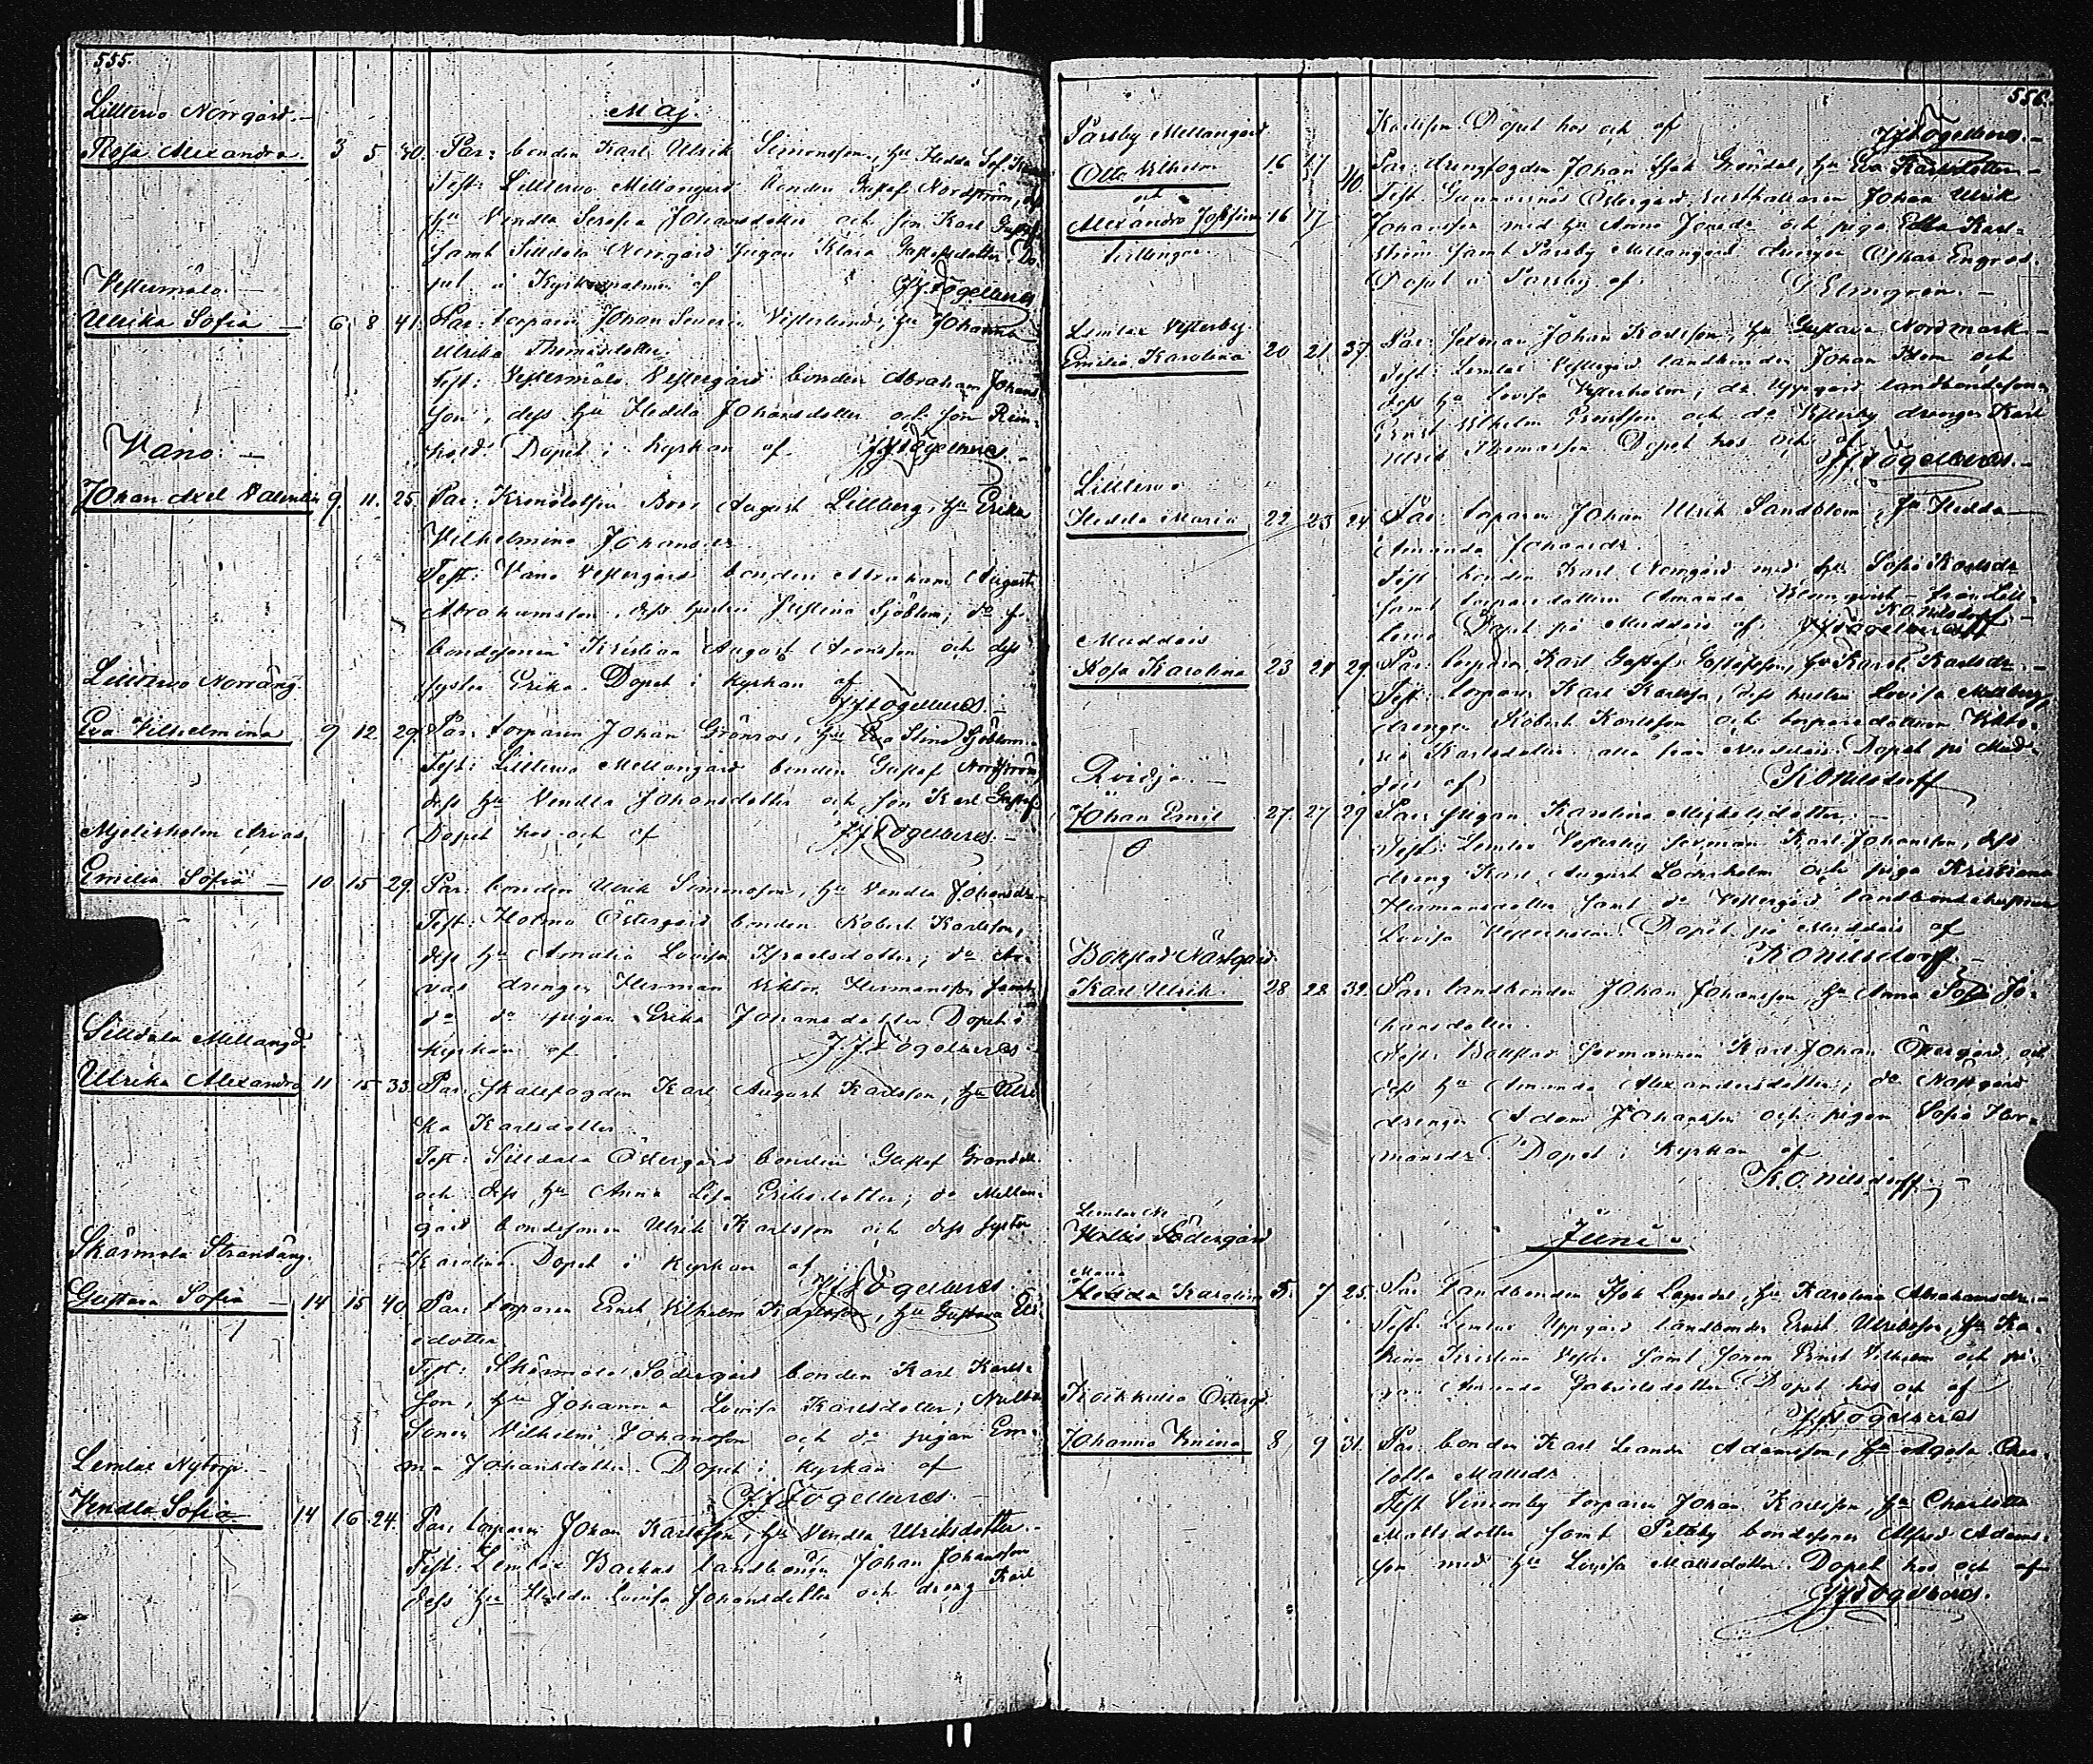 555.
Maj.
Lilltervo Norrgård.
Rosa Alexandra 3 5 30. Par: bonden Karl Ulrik Simonsson, hu Hedda Sof.
Test: Lilltervo Mellangård bonden Gustaf Nordström, dess
hu Vendla Serafia Johansdotter och son Karl Gustaf
samt Silldala Norrgård pigan Klara Gustafsdotter. Dö-
pet i af JJFogelberg
Vestermålo.
Ulrika Sofia 6 8 41. Par: torparen Johan Severin Vesterlund, hu Johanna
Ulrika Thomasdotter
Test: Vestermålo Vestergård bonden Abraham Johans
son, dess hu Hedda Johansdotter och son Rein-
hold. Döpet i kyrkan af JJFogelberg.
Vano.
Johan Axel Valentin 9. 11. 25. Par: August Lillberg, hu Erika
Vilhelmina Johansdr.
Test: Vano Vestergård bonden Abraham August
Abrahamsson, dess hustru Justina Sjöblom; do f.
bondesonen Kristian August Aronsson och dess
syster Erika. Döpet i kyrkan af
JJFogelberg.
Lilltervo Norräng.
Eva Vilhelmina 9 12. 29. Par: torparen Johan Grönros, hu Eva Stina Sjöblom.
Test: Lilltervo Mellangård bonden Gustaf Nordström
dess hu Vendla Johansdotter och son Karl Gustaf.
Döpet hos och af JJFogelberg.
Mjelisholm Arvas
Emilia Sofia 10 15 29. Par: bonden Ulrik Simonsson, hu Vendla Johansdr.
Test: Holma Östergård bonden Robert Karlsson,
dess hu Amalia Lovisa Israelsdotter; do Ar-
vas drengen Herman Viktor Hermansson samt
do do pigan Erika Johansdotter. Döpet i
kyrkan af JJFogelberg.
Silldala Mellangd.
Ulrika Alexandra 11 15 33. Par: skallfogden Karl August Karlsson, hu Ulri
ka Karlsdotter
Test: Silldala Östergård bonden Gustaf Grandell
och dess hu Anna Lisa Eriksdotter; do Mellan-
gård bondesonen Ulrik Karlsson och dess syster
Karolina. Döpet i kyrkan af
JJFogelberg.
Skärmola Strandäng.
Gustava Sofia 14. 15 40. Par: torparen Ernst Vilhelm Karlsson, hu Gustava
sdotter
Test: Skärmola Södergård bonden Karl Karls-
son, hu Johanna Lovisa Karlsdotter;
Sonen Vilhelm Johansson och do pigan Em-
ma Johansdotter. Döpet i kyrkan af
JJFogelberg.
Lemlax Nytorp.
Vendla Sofia 14 16. 24. Par: torparen Johan Karlsson, hu Vendla Ulriksdotter.
Test: Lemlax Backas landbonden Johan Johansson
dess hu Hedda Lovisa Johansdotter och dreng Karl
556.
Karlsson. Döpet hos och af JJFogelberg.
Parsby Mellangård
Otto Vilhelm 16 17 40. Par: drengfogden Johan Isak Gröndal, hu Eva Karlsdotter
och
Alexandra Josefina 16 17 Test: Gunnarsnäs Östergård rusthållaren Johan Ulrik
Tvillingar Johansson med hu Anna och piga Edla Karl-
ström samt Parsby Mellangård drengen Oskar Engros.
Döpet i Parsby af G Elmgren.
Lemlax Vesterby
Emilia Karolina 20 21. 37. Par: sexman Johan Karlsson, hu Gustava Nordmark
Test: Lemlax Vestergård landbonden Johan Blom och
dess hu Lovisa Vesterholm, do Uppgård landbondesonen
Ernst Vilhelm Ernstsson och do Vesterby drengen Karl
Ulrik Thomasson. Döpet hos och af
JJFogelberg.
Lilltervo
Hedda Maria 22 23 24 Par: torparen Johan Ulrik Sandblom, hu Hedda
Amanda Johansdr.
Test: bonden Karl Norrgård med hu Sofia Karlsdr
samt torparedottern Amanda Blomqvist från Lill-
tervo. Döpet på Muddais af K.O.Nilsdorff
Muddais
Rosa Karolina 23 24 29. Par: torparen Karl Gustaf Gustafsson, hu Karol. Karlsdr.
Test: torparen Karl Karlsson, dess hustru Lovisa Mellberg,
drengen Robert Karlsson och torparedottern Vikto-
ria Karlsdotter alla från Muddais. Döpet på Mud-
dais af K.O.Nilsdorff
Qvidja.
Johan Emil 27. 27 29 Par: pigan Karolina Mickelsdotter.
Test: Lemlax Vesterby sexman Karl Johansson, dess
dreng Karl August Lochsholm och piga Kristiana
Hermansdotter samt do Vestergård landbondehustrun
Lovisa Vesterholm. Döpet på Muddais af
K.O.Nilsdorff.
Bollstad Näsgård
Karl Ulrik. 28 28 32. Par: landbonden Johan Johansson hu Anna Sofia Jo-
hansdotter.
Test: Bollstad formannen Karl Johan Öfvergård, och
dess hu Amanda Alexandersdotter; do Näsgård
drengen Adam Johansson och pigan Sofia Her-
mansdr. Döpet i kyrkan af
K.O.Nilsdorff.
Juni
Lemlax
Södergård
Maria
Hedda Karolina 5. 7 25. Par: landbonden Lagerdal, hu Karolina Abrahamsdr.
Test: Lemlax Uppgård landbonden Ernst Ulriksson, hu Ka-
rina Kristina Vester samt sonen Ernst Vilhelm och pi-
gan Amanda Gabrielsdotter. Döpet hos och af
JJFogelberg
Koikkulla Östergd.
Johanna Irina 8 9 31. Par: bonden Karl Leander Adamsson, hu Agata Char-
lotta Mattsdr.
Test: Simonby torparen Johan Karlsson, hu Charlotta
Mattsdotter samt Petteby bondesonen Alfred Adams-
son med hu Lovisa Mattsdotter. Döpet hos och af
JJFogelberg.